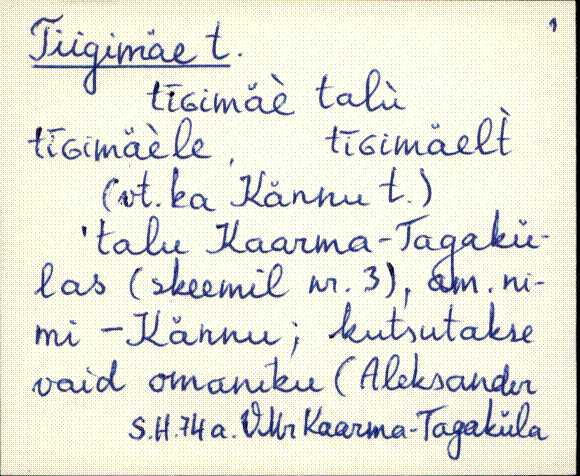 1
Tiigimäe t.
tīGimäè talù
tīGimäèle, tīGimäelt̀
(vt. ka Kännu t.)
'talu Kaarma-Tagakü-
las (skeemil nr. 3), am. ni-
mi - Kännu; kutsutakse
vaid omaniku (Aleksander
S.H. 74 a. VMr Kaarma-Tagaküla